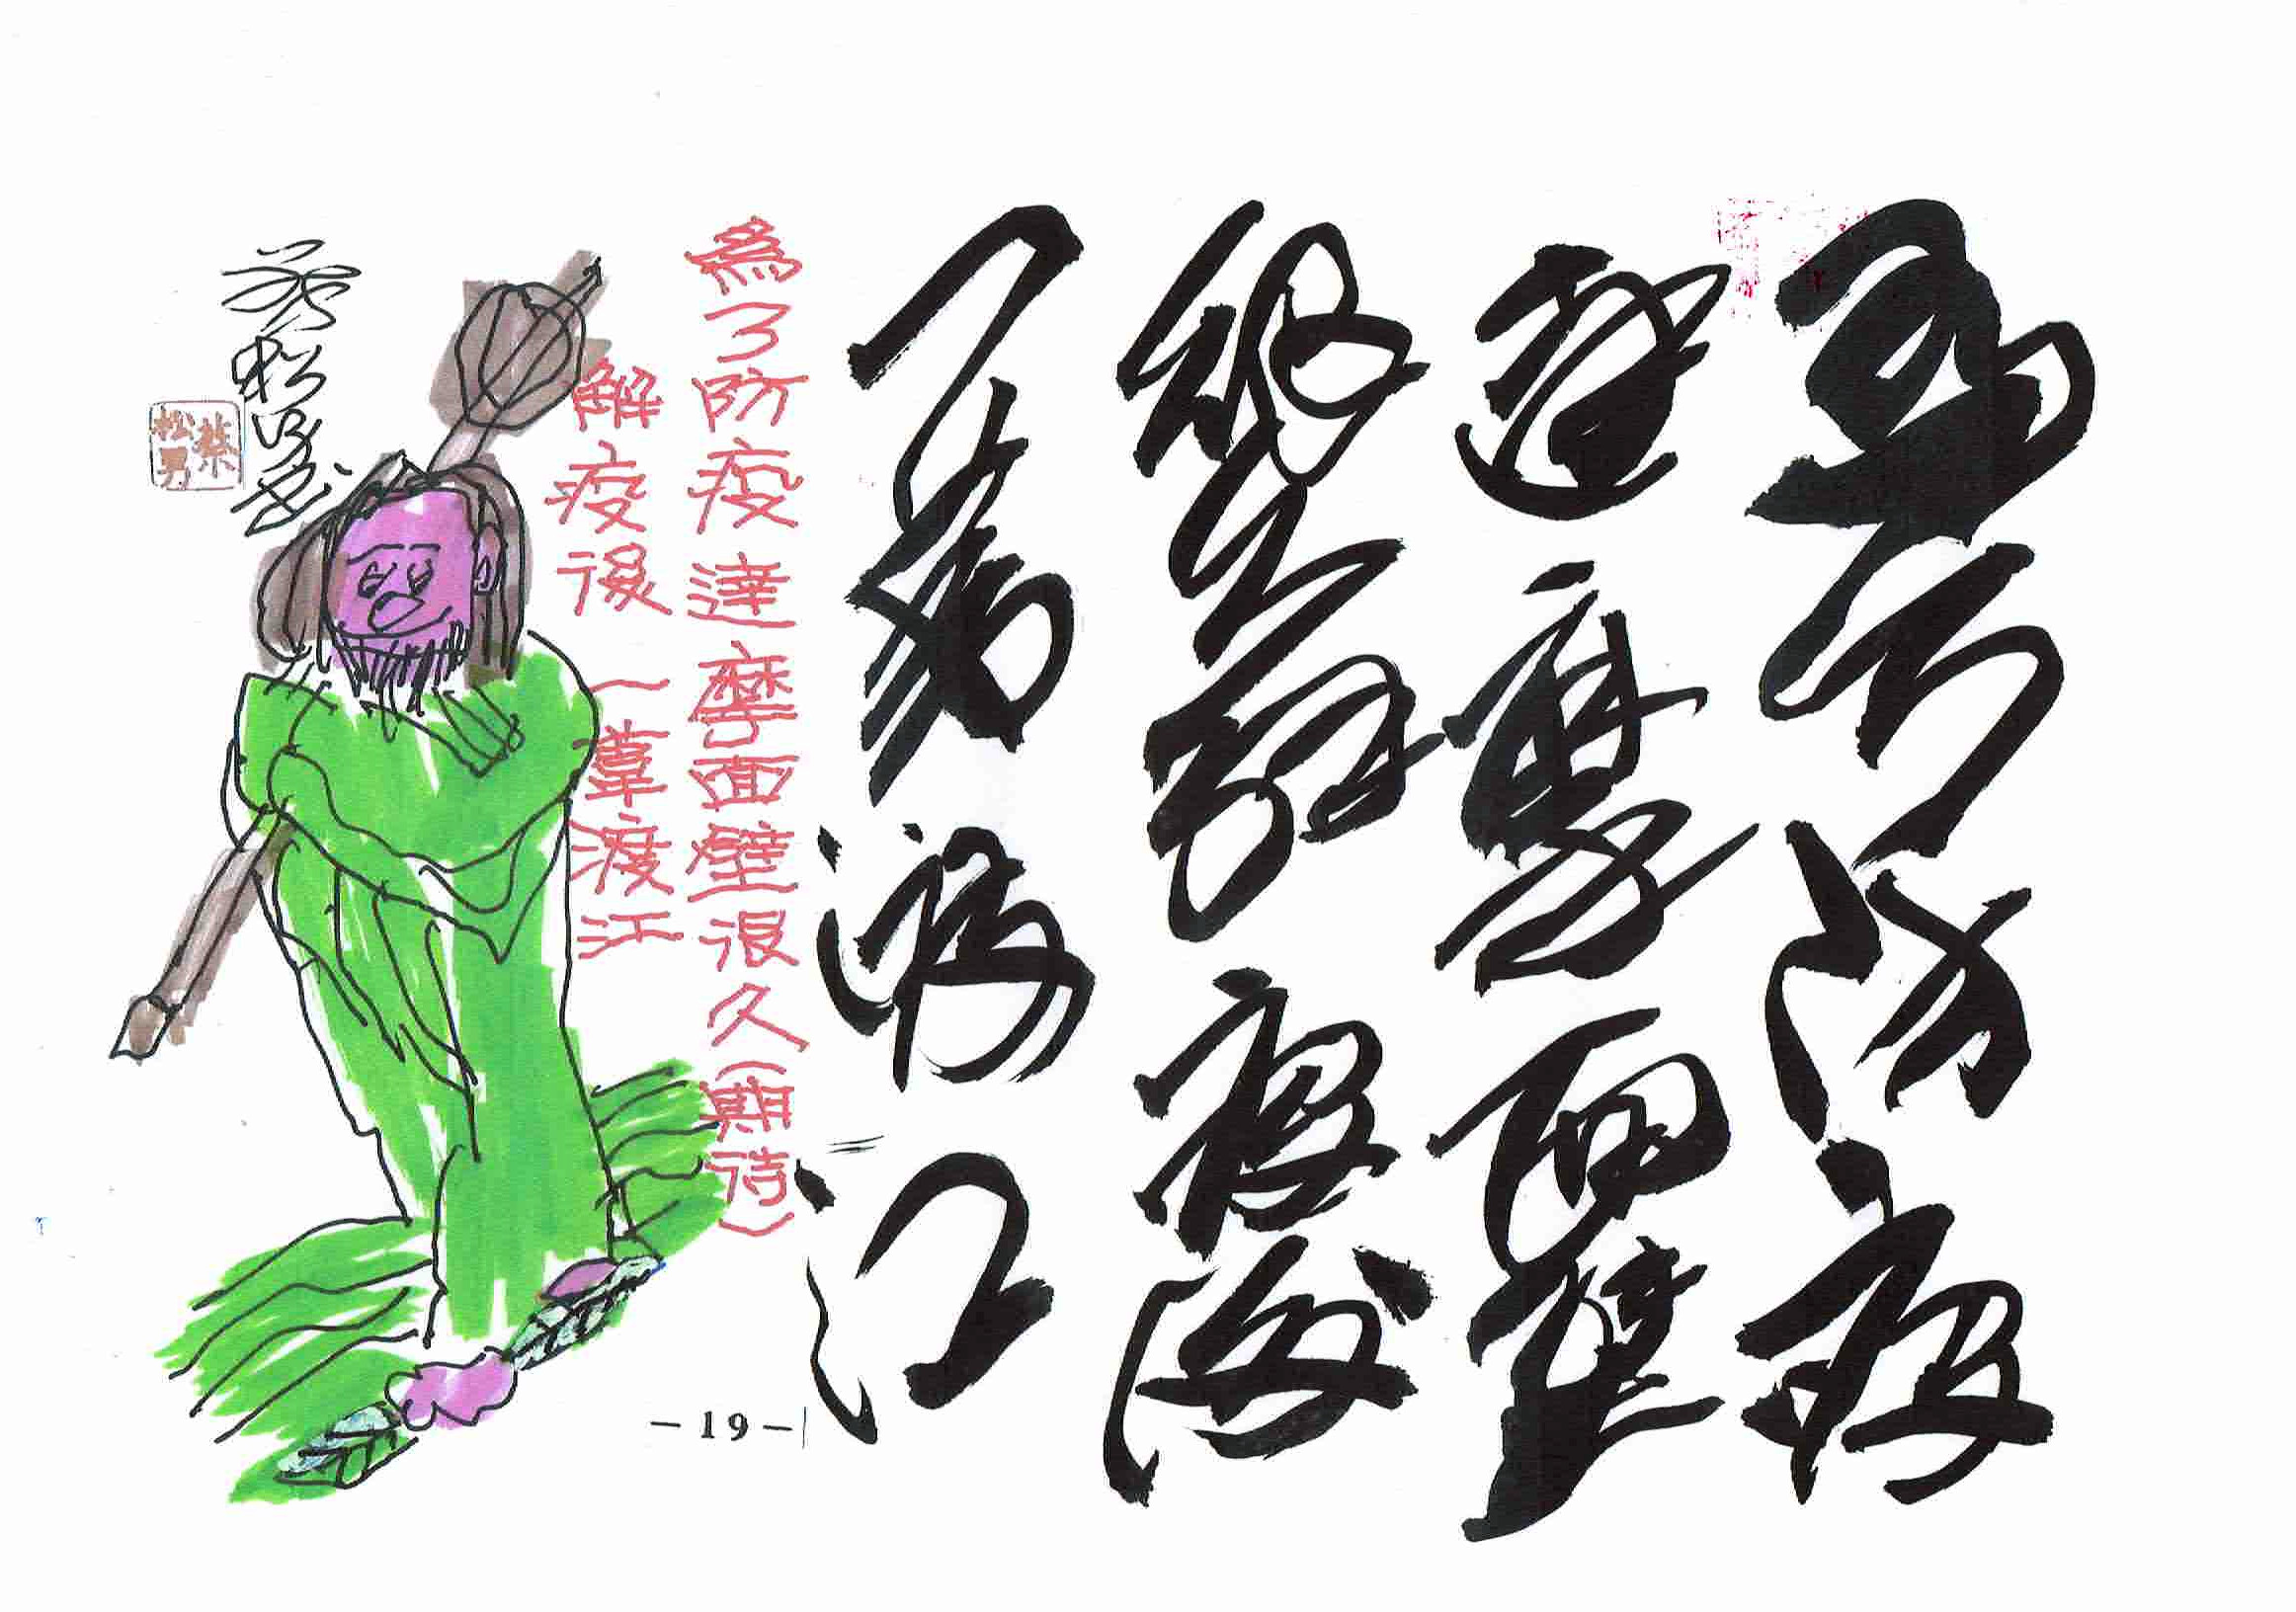 為了防疫
達摩面壁
很久解疫後
一葦渡江
為了防疫達摩面壁很久(期待)
解疫後一葦渡江
蔡松男書
蔡松男
－19－